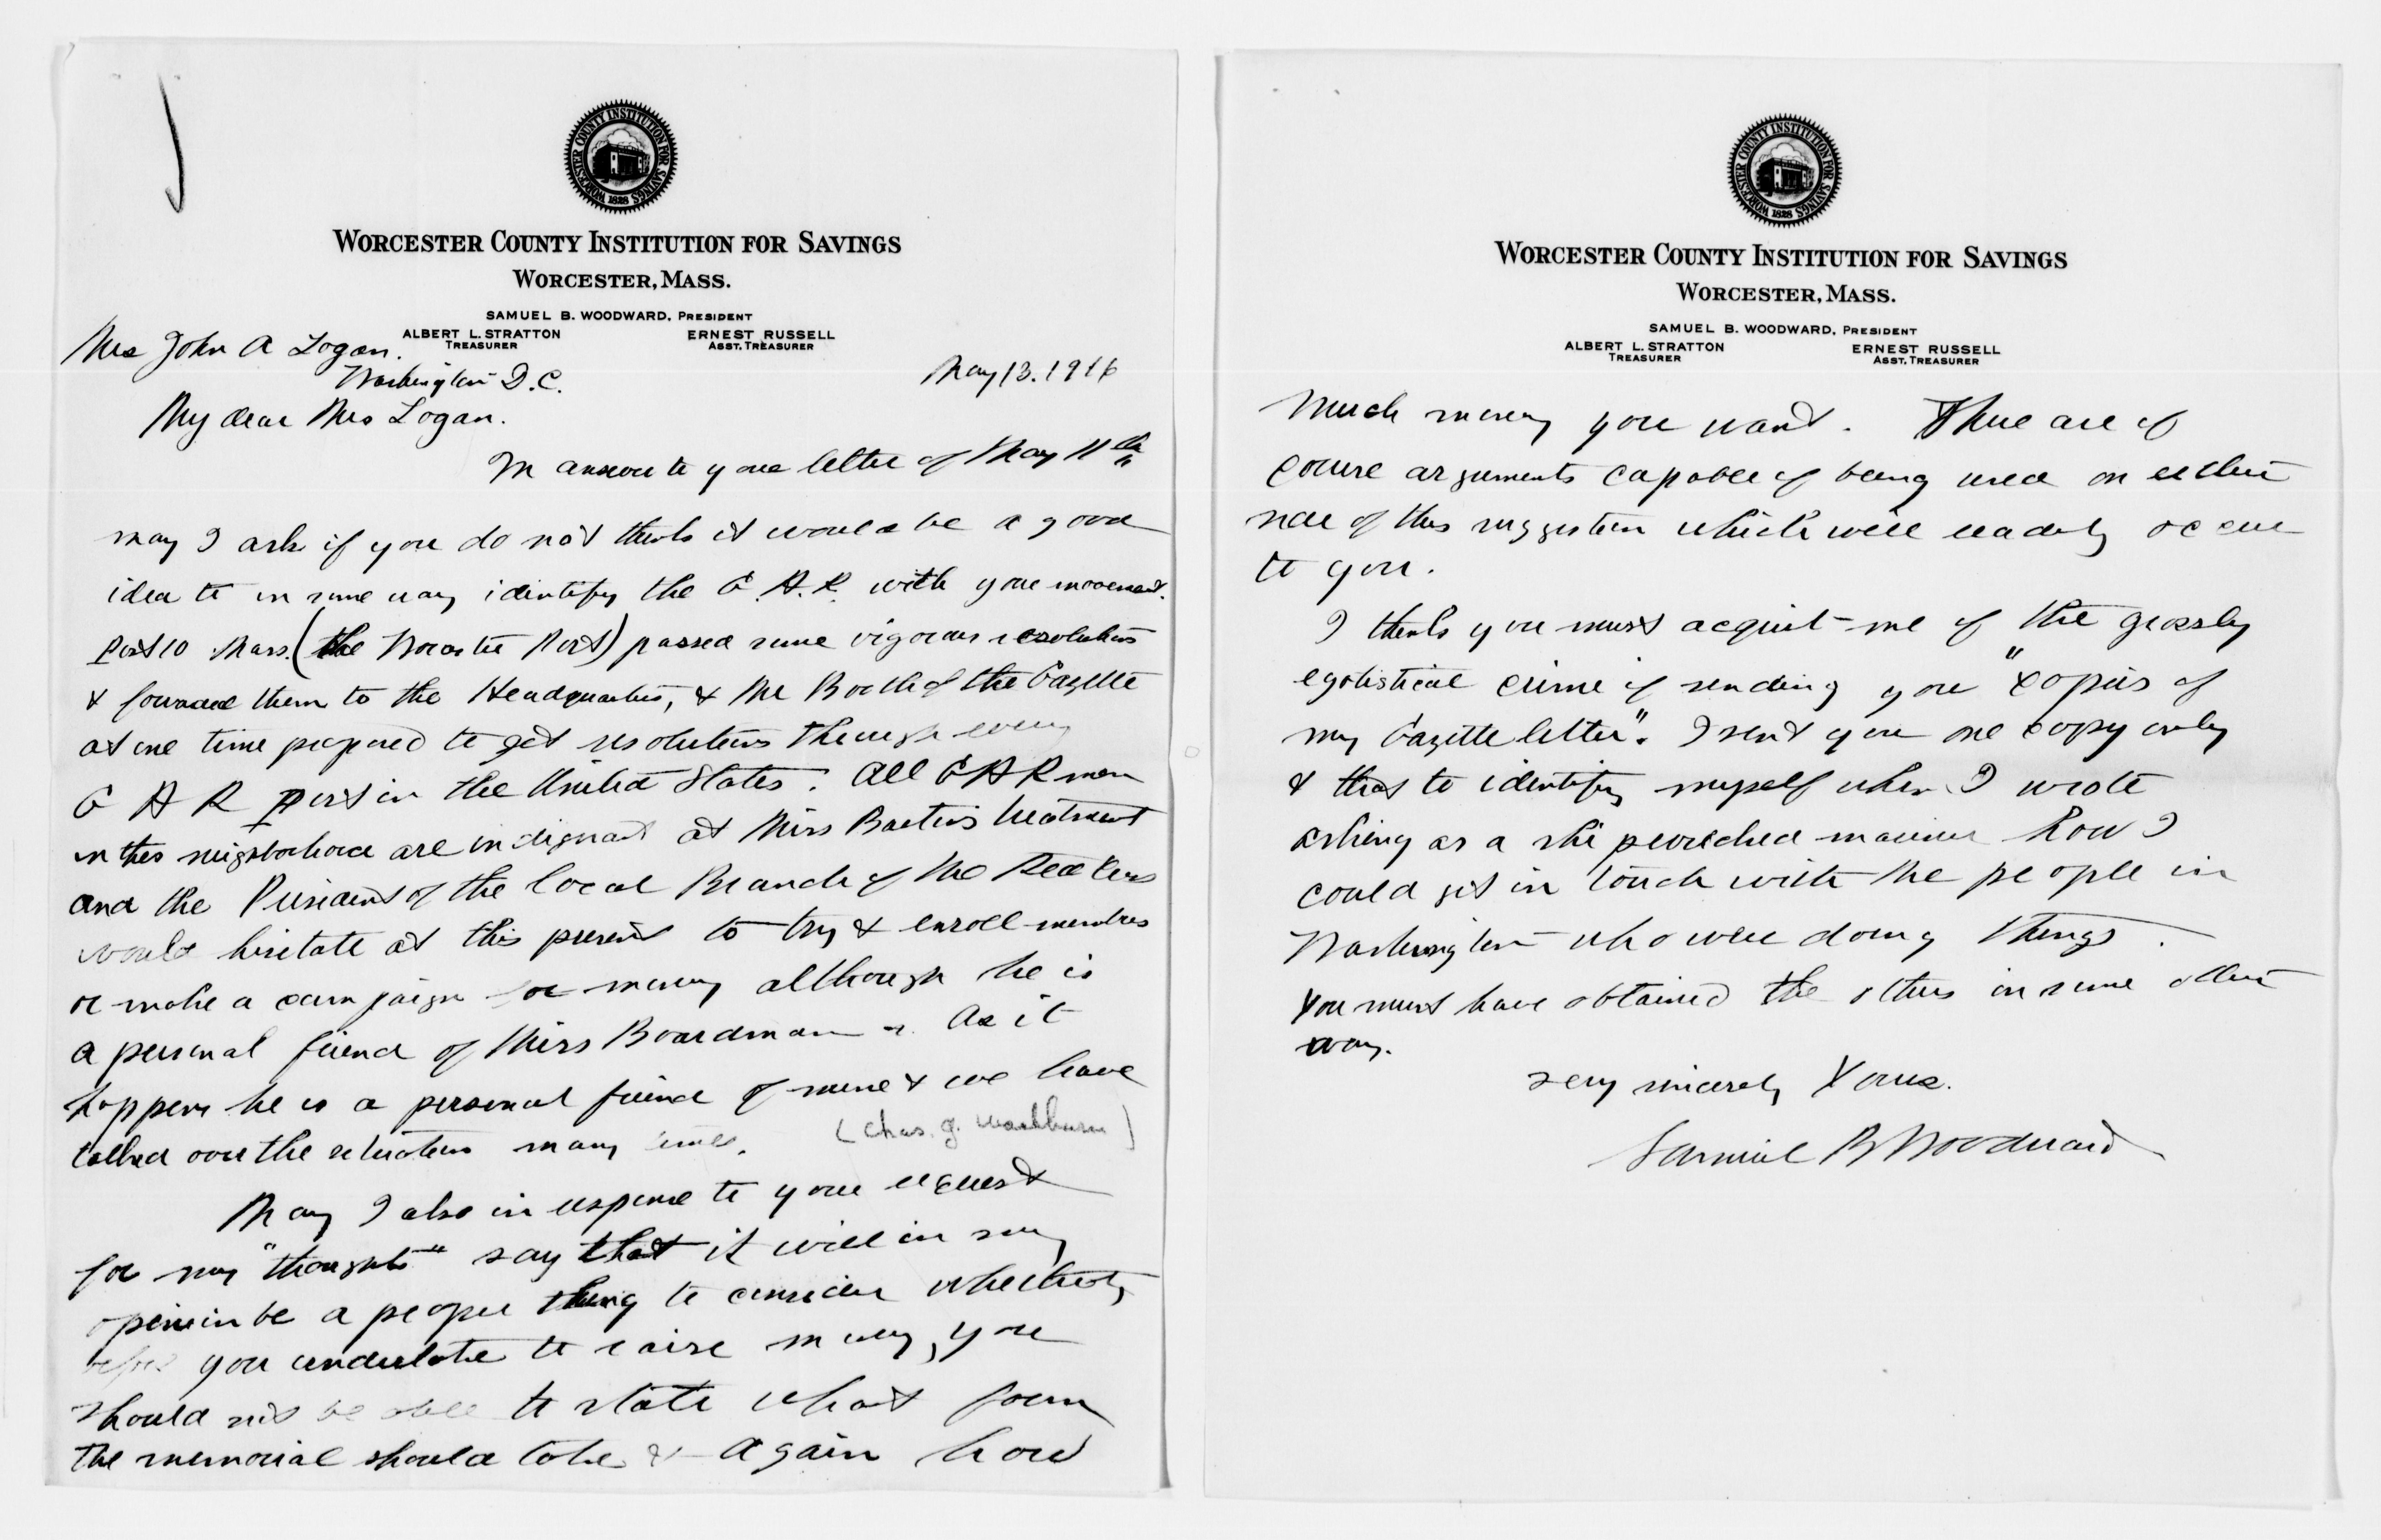 WORCESTER COUNTY INSTITUTION FOR SAVINGS
1828
WORCESTER COUNTY INSTITUTION FOR SAVINGS
WORCESTER, MASS.
SAMUEL B. WOODWARD, PRESIDENT
ALBERT L. STRATTON ERNEST RUSSELL
TREASURER ASST. TREASURER
Mrs John A Logan.
Washington D.C.
May 13. 1916
My dear Mrs Logan.
In answer to your letter of May 11th
may I ask if you do not think it would be a good
idea to in some way identify the G.A.R. with your movement.
Post 10 Mass. (the Worcester Post) passed some vigorous resolutions
& forwarded them to the Headquarters, & Mr Booth of the Gazette
at one time proposed to get resolutions through every
G A R post in the United States. All G A R men
in this neighborhood are indignant at Miss Barton's treatment
and the President of the local Branch of the Red Cross
would hesitate at this present to try & enroll members
or make a campaign for money although he is
a personal friend of Miss Boardman. As it
happens he is a personal friend of mine & we have
talked over the situation many times.
(Chas. G. Washburn)
May I also in response to your request
for my "thoughts" say that it will in my
opinion be a proper thing to consider whether
before you undertake to raise money, you
should not be able to state what form
the memorial should take & again how
WORCESTER COUNTY INSTITUTION FOR SAVINGS
1828
WORCESTER COUNTY INSTITUTION FOR SAVINGS
WORCESTER, MASS.
SAMUEL B. WOODWARD, PRESIDENT
ALBERT L. STRATTON ERNEST RUSSELL
TREASURER ASST. TREASURER
much money you want. There are of
course arguments capable of being used on either
side of this suggestion which will readily occur
to you.
I think you must acquit me of the grossly
egotistical crime of sending you "copies of
my Gazette letter". I sent you one copy only
& that to identify myself when I wrote
asking as a manner how I
could get in touch with the people in
Washington who were doing things.
You must have obtained the others in some other
way.
Very sincerely Yours.
Samuel B Woodward